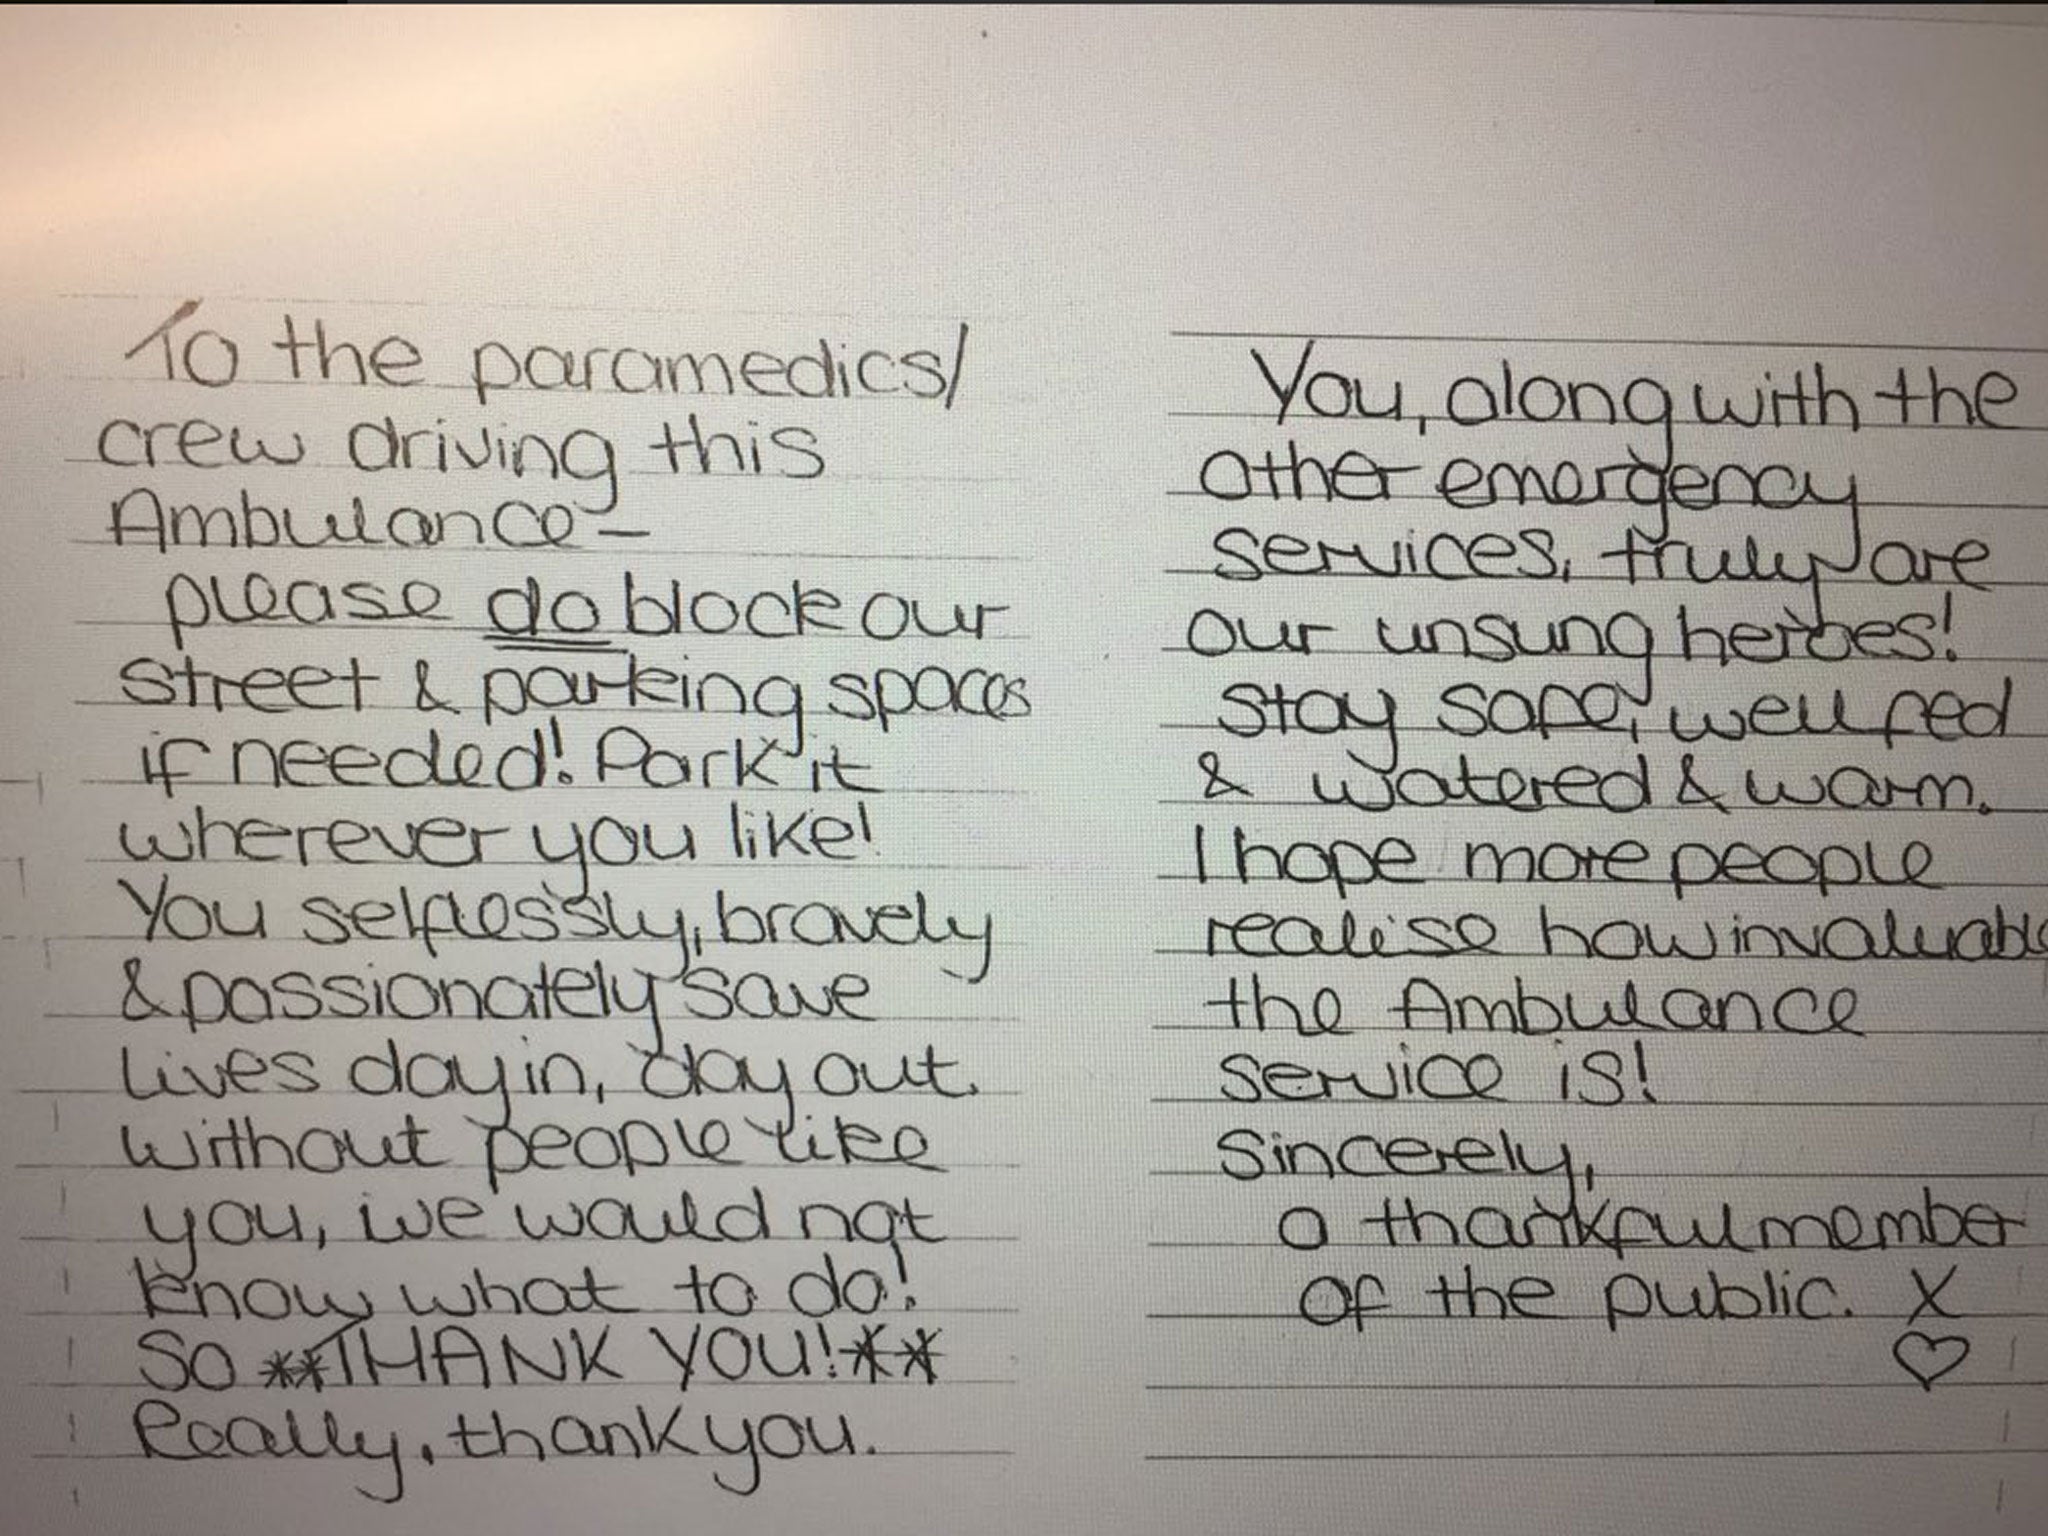 To the paramedics/
crew driving this
Ambulance -
please do block our
street & parking spaces
if needed! Park it
wherever you like!
You selflessly, bravely
& passionately save
lives day in, day out.
without people like
you, we would not
know what to do!
So **THANK YOU!**
Really, thank you.
You, along with the
other emergency
services, truly are
our unsung heroes!
stay safe, well fed
& watered & warm.
I hope more people
realise how invaluable
the Ambulance
service is!
Sincerely,
a thankful member
of the public. X